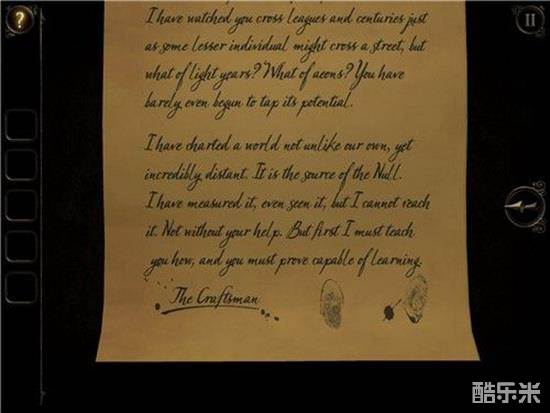 ?
I have watched you cross leagues and centuries just
as some lesser individual might cross a street, but
what of light years? What of aeons? You have
barely even begun to tap its potential.
I have charted a world not unlike our own, yet
incredibly distant. It is the source of the Null.
I have measured it, even seen it, but I cannot reach
it. Not without your help. But first I must teach
you how, and you must prove capable of learning.
The Craftsman
酷乐米